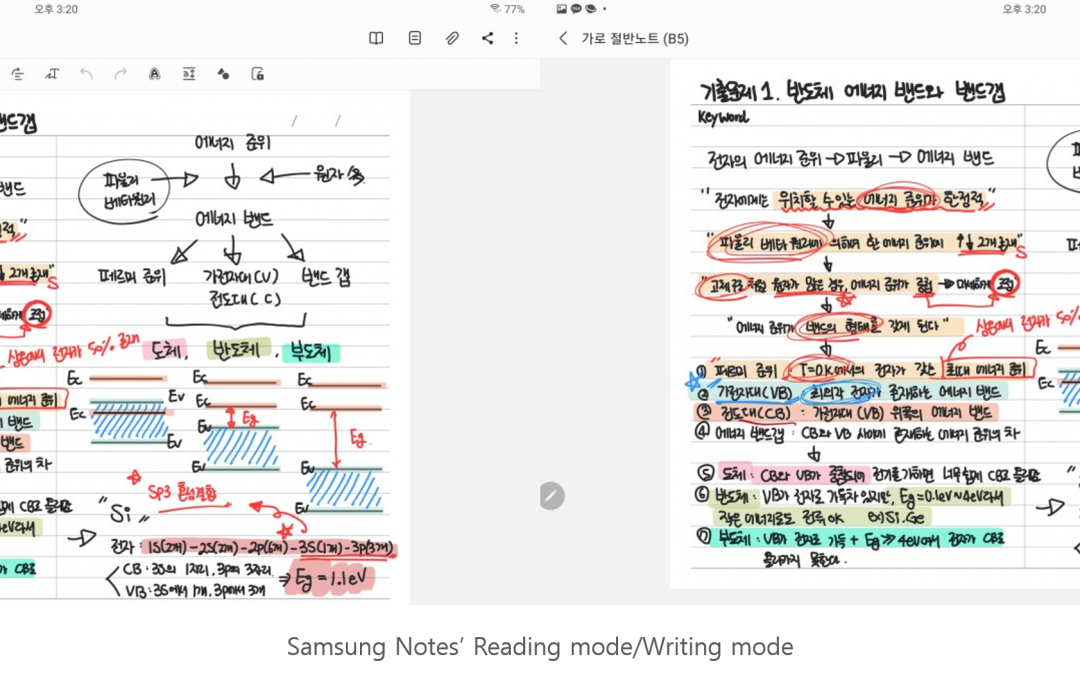 오후 3:20
77%
밴드갭
/ /
에너지 준위
파울리
베타원리
원자 多
에너지 밴드
페르미 준위
가전자대(V)
전도대(C)
밴드 갭
상온에서 전자가 50% 존재
도체, 반도체, 부도체
Ec Ec Ec
Ev Ec Eg Ec
Ec Ev Eg.
Ev Ev Ev
Ev
Sp3 혼성결합
"Si"
전자 : 1S(2개)-2S(2개)-2p(6개)-3S(1개)-3p(3개)
CB : 3S의 1자리, 3p의 3자리
VB : 3S에서 1개, 3p에서 3개
⇒ Eg = 1.1eV
오후 3:20
가로 절반노트 (B5)
기출문제 1. 반도체 에너지 밴드와 밴드갭
Keyword
전자의 에너지 준위 → 파울리 → 에너지 밴드
"전자에게는 위치할 수 있는 에너지 준위가 한정적"
"파울리 베타 원리에 의하여 한 에너지 준위에 ↑↓ 2개 존재"
S
"고체 구조처럼 원자가 많은 경우, 에너지 준위가 중첩 →
"에너지 준위가 밴드의 형태를 갖게 된다"
상온에서 전자가 50%
① 페르미 준위 T=0K에서의 전자가 갖는 최대 에너지 준위
② 가전자대(VB) 최외각 전자가 존재하는 에너지 밴드
③ 전도대(CB) : 가전자대(VB) 위쪽의 에너지 밴드
④ 에너지 밴드갭 : CB와 VB 사이에 존재하는 에너지 준위의 차
Ec
Ec
⑤ 도체 : CB와 VB가 중첩되어 전기를 가하면 너무 쉽게 CB로 올라감
⑥ 반도체 : VB가 전자로 가득차 있지만, Eg=0.1eV~4eV라서
작은 에너지로도 전류 OK ex) Si. Ge
⑦ 부도체 : VB가 전자로 가득 + Eg ≫ 4eV여서 전자가 CB로
올라가지 못한다.
Samsung Notes' Reading mode/Writing mode